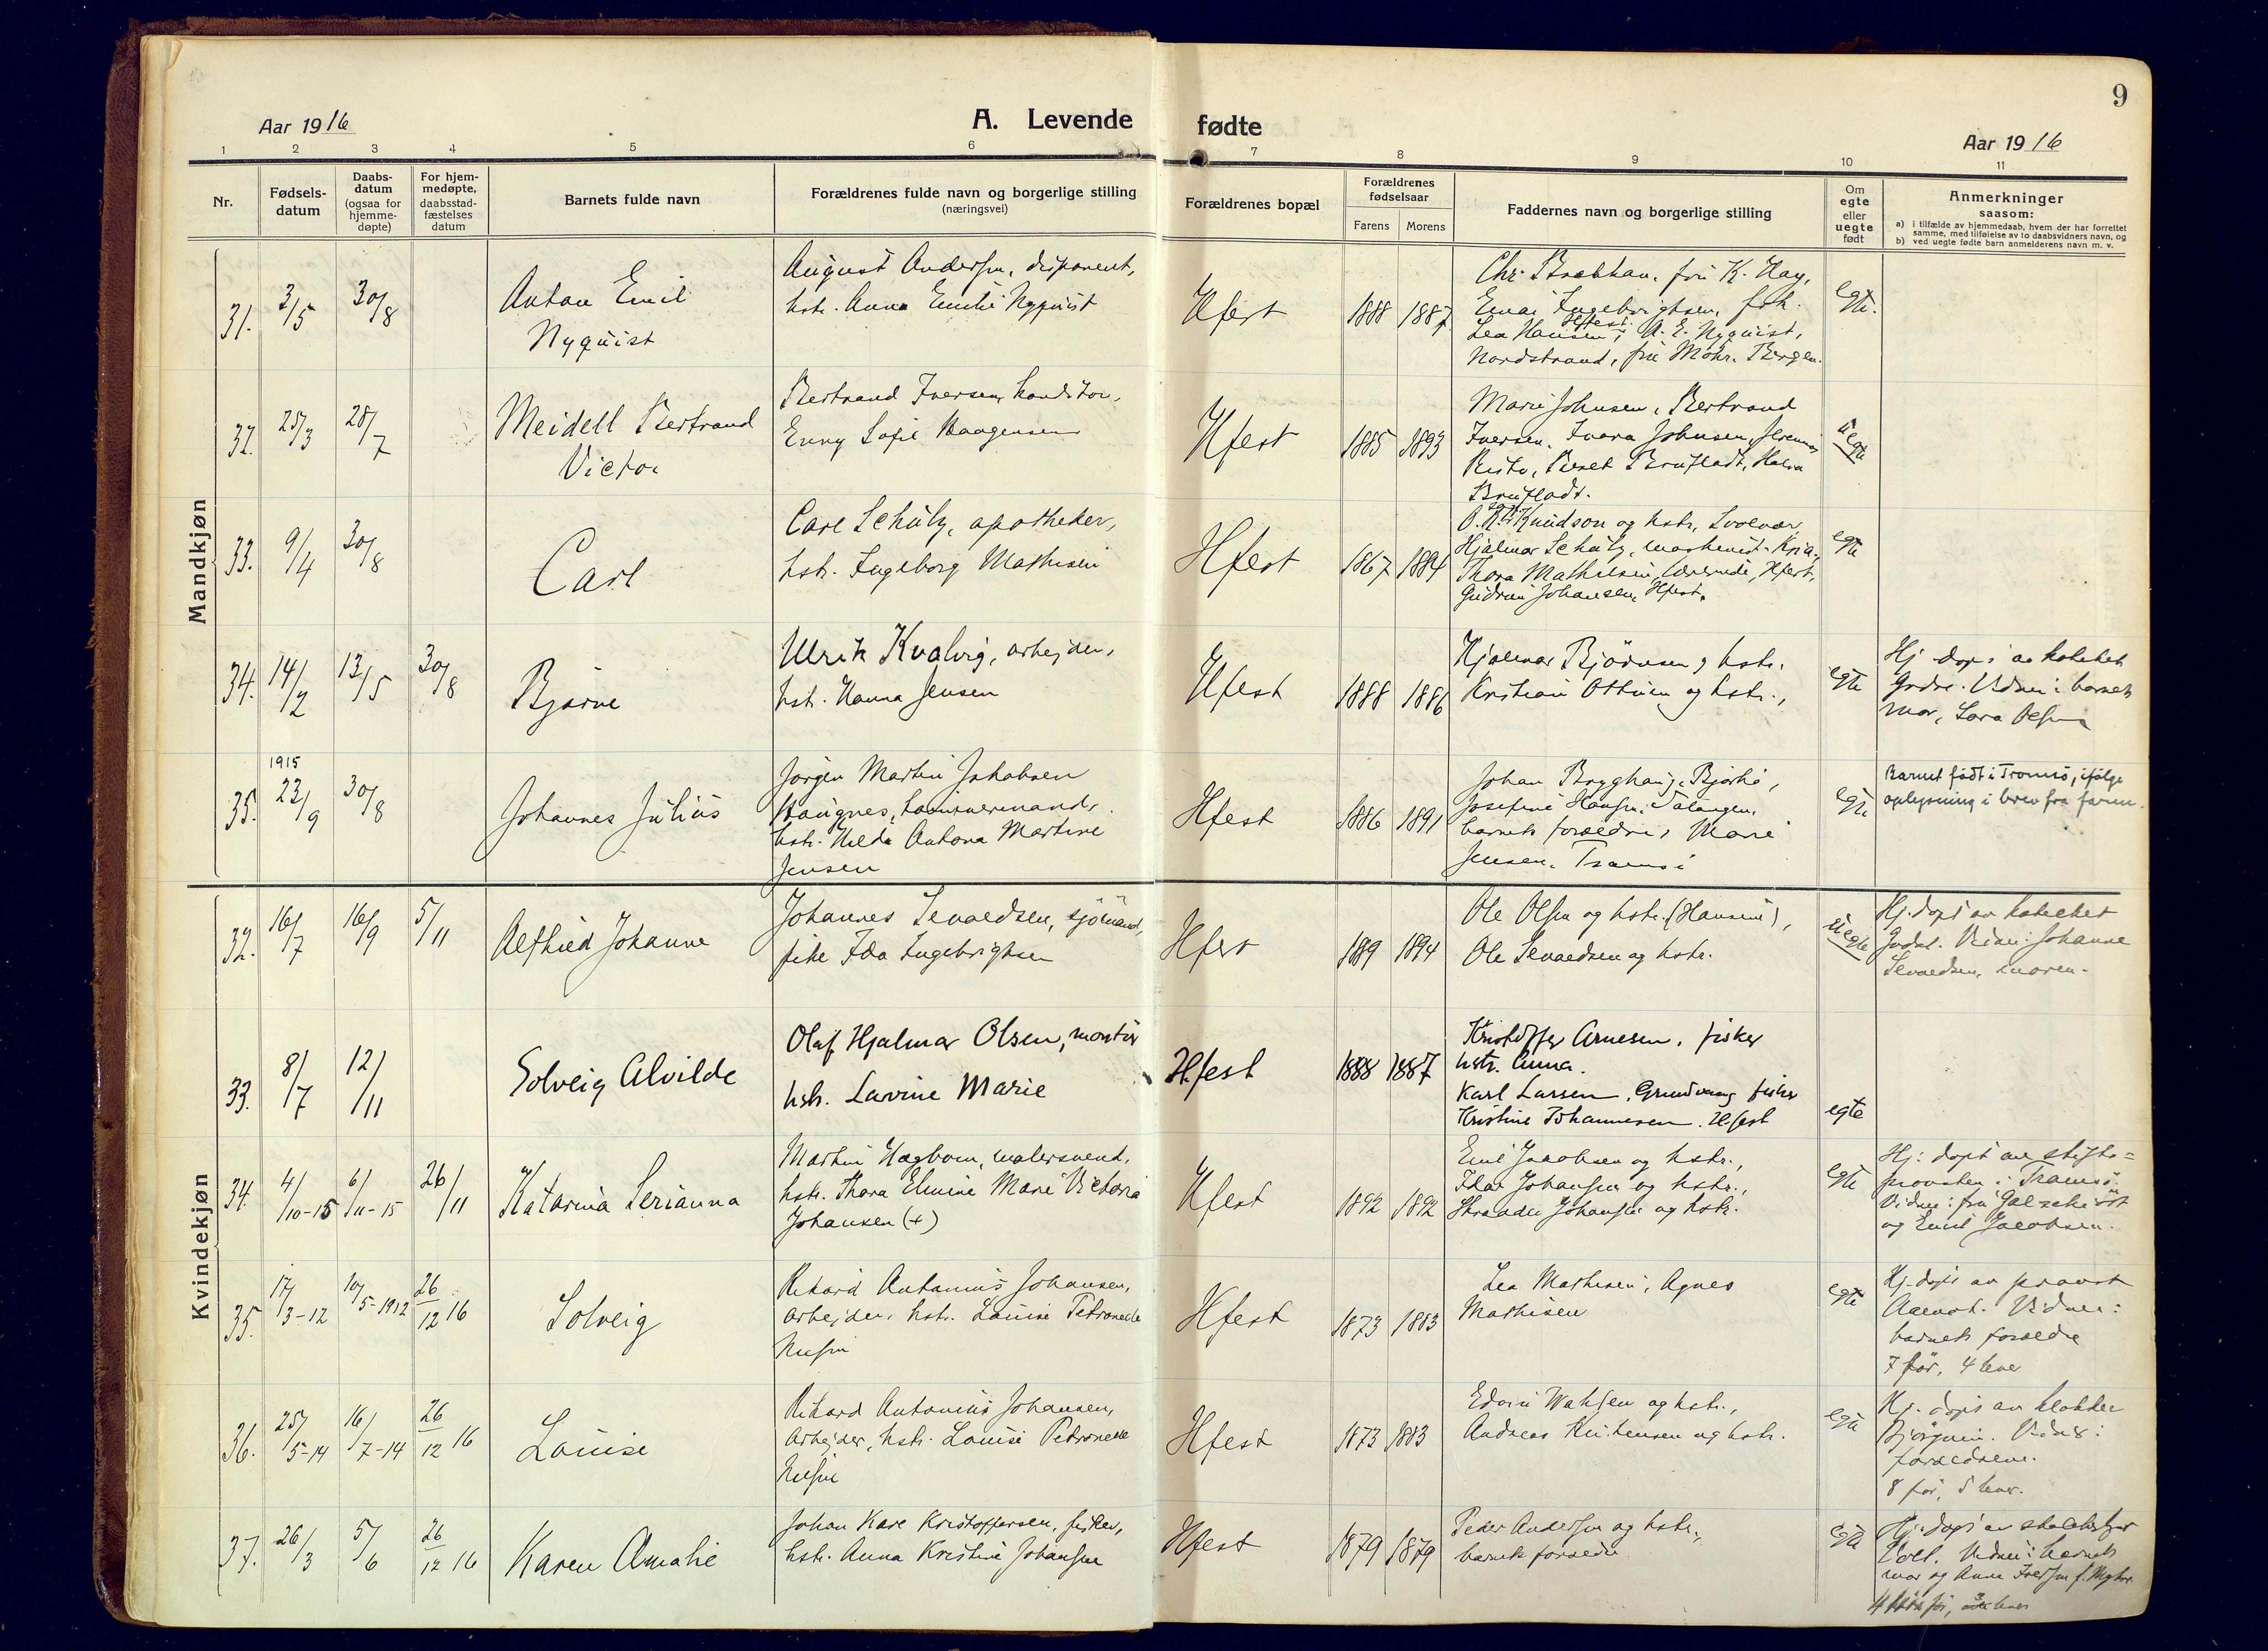 9
Aar 1916
A. Levende fødte
Aar 1916
1 2 3 4 5 6 7 8 9 10 11
Nr.
Fødsels-
datum
Daabs-
datum
(ogsaa for
hjemme-
døpte)
For hjem-
medøpte,
daabsstad-
fæstelses
datum
Barnets fulde navn
Forældrenes fulde navn og borgerlige stilling
(næringsvei)
Forældrenes bopæl
Forældrenes
fødselsaar
Farens Morens
Faddernes navn og borgerlige stilling
Om
egte
eller
uegte
født
Anmerkninger
saasom:
a) i tilfælde av hjemmedaab, hvem der har forrettet
samme, med tilføielse av to daabsvidners navn, og
b) ved uegte fødte barn anmelderens navn m. v.
Mandkjøn
31. 3/5 30/8
Anton Emil
Nyquist
August Andersen, disponent,
hstr. Anna Emilie Nyquist
Hfest 1888 1887
fru K. Hay,
Einar Ingebrigtsen, frk.
Lea Hansen, Hfest. A. E. Nyquist,
Nordstrand, fru Mohr. Bergen.
egte.
32. 25/3 28/7
Meidell Bertrand
Victor
Bertrand Iversen, konditor,
Enny Sofie Haagensen
Hfest 1885 1893
Marie Johnsen, Bertrand
Iversen, Ivara Johnsen,
Brufladt, 
Brufladt.
uegte
33. 9/4 30/8
Carl
Carl Schulz, apotheker,
hstr. Ingeborg Mathisen
Hfest 1867 1884
Knudson og hstr., Svolvær,
Hjalmar Schulz, maskinist, Kr.ia.,
Thora Mathisen, Hfest,
Gudrun Johansen, Hfest.
egte
34. 14/2 13/5 30/8
Bjarne
Ulrik Kvalvig, arbeider,
hstr. Hanna Jensen
Hfest 1888 1886
Hjalmar Björnsen og hstr.
Kristian og hstr.,
egte
Hj. døpt av kateket
Vidner: barnets
mor, Lara Olsen
35. 1915 23/9 30/8
Johannes Julius
Jørgen Martin Jakobsen
Haugnes, tømmermand,
hstr. Hilda Antona Martine
Jensen
Hfest 1886 1891
Johan Brygghaug,
Josefine Hansen,
barnets forældre, Marie
Jensen, Tromsø
egte
Barnet født i Tromsø, ifølge
oplysning i brev fra faren.
Kvindekjøn
32. 16/7 16/9 5/11
Alfhild Johanne
Johannes Sivaldsen, sjømand,
pike Ida Ingebrigtsen
Hfest 1889 1894
Ole Olsen og hstr. (Hansine),
Ole Sivaldsen og hstr.
uegte
Hj. døpt av kateket
Vidner: Johanne
Sivaldsen, moren.
33. 8/7 12/11
Solveig Alvilde
Olaf Hjalmar Olsen, montør
hstr. Lavine Marie
Hfest 1888 1887
Kristoffer Arnesen, fisker
hstr. Anna.
Karl Larsen, Grundvaag fisker
Kristine Johannesen. Hfest
egte
34. 4/10-15 6/11-15 26/11
Katarina Serianna
Martin Hagbom, malersvend,
hstr. Thora Elmine Marie Victoria
Johansen (+)
Hfest 1892 1892
Emil Jacobsen og hstr.,
Johansen og hstr.,
Johansen og hstr.
egte
Hj. døpt av stifts-
provsten i Tromsø.
Vidner: fru Galschiøtt
og Emil Jacobsen.
35. 17/3-12 10/5-1912 26/12 16
Solveig
Rikard Antonius Johansen,
arbeider, hstr. Louise Petronelle
Nilsen
Hfest 1873 1883
Lea Mathisen, Agnes
Mathisen
egte
Hj. døpt av provst
Vidner:
barnets forældre
7 før, 4 lever
36. 25/5-14 16/7-14 26/12 16
Louise
Rikard Antonius Johansen,
arbeider, hstr. Louise Petronelle
Nilsen
Hfest 1873 1883
Edvin og hstr.,
Andreas Kristensen og hstr.
egte
Hj. døpt av klokker
Vidner:
forældrene.
8 før, 5 lever.
37. 26/3 5/6 26/12 16
Karen Amalie
Johan Kare Kristoffersen, fisker,
hstr. Anna Kristine Johansen
Hfest 1879 1879
Peder Andersen og hstr.,
barnets forældre
egte
Hj. døpt av
Vidner: barnets
mor og Anna
før, lever